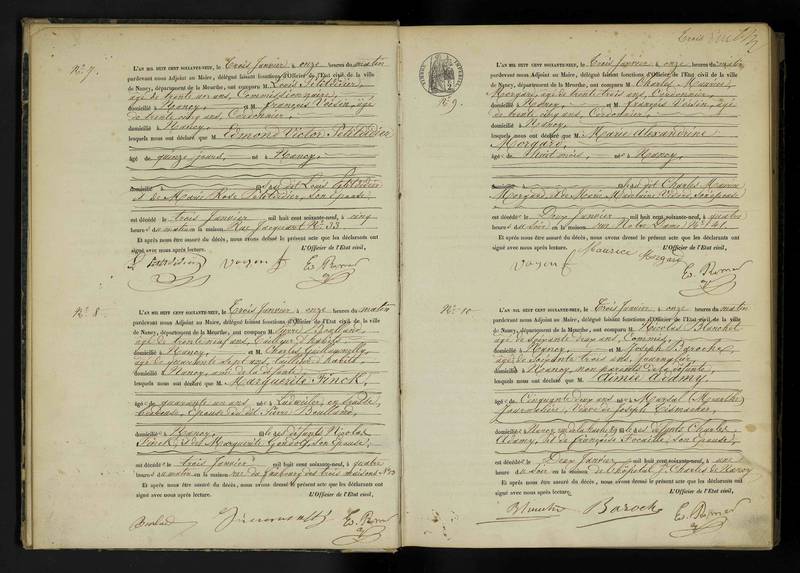 N° 7.
L'AN MIL HUIT CENT SOIXANTE-NEUF, le Trois Janvier à onze heures du matin
pardevant nous Adjoint au Maire, délégué faisant fonctions d'Officier de l'Etat civil de la ville
de Nancy, département de la Meurthe, ont comparu M. Louis Petitdidier,
âgé de trente un ans, Commissionnaire,
domicilié à Nancy, et M. François Voisin, âgé
de trente cinq ans, Cordonnier,
domicilié à Nancy,
lesquels nous ont déclaré que M. Edmond Victor Petitdidier
âgé de quinze jours, né à Nancy,
domicilié à fils du dit Louis Petitdidier
et de Marie Rose Petitdidier, son épouse
est décédé le trois Janvier mil huit cent soixante-neuf, à cinq
heures du matin Rue Jacquard N° 33
Et après nous être assuré du décès, nous avons dressé le présent acte que les déclarants ont
signé avec nous après lecture. L'Officier de l'Etat civil,
N° 8.
L'AN MIL HUIT CENT SOIXANTE-NEUF, le Trois Janvier à onze heures du matin
pardevant nous Adjoint au Maire, délégué faisant fonctions d'Officier de l'Etat civil de la ville
de Nancy, département de la Meurthe, ont comparu M. Pierre
âgé de trente neuf ans, Tailleur d'habits
domicilié à Nancy, et M. Charles
âgé de quarante sept ans, tailleur d'habits,
domicilié à Nancy, ami de la défunte
lesquels nous ont déclaré que M. Marguerite Finck,
âgée de quarante un ans née à
Épouse du dit Pierre
domiciliée à Nancy, fille des défunts Nicolas
Finck, et de Marguerite son épouse,
est décédée le trois Janvier mil huit cent soixante-neuf, à quatre
heures du matin en la maison rue du faubourg des trois maisons, N°
Et après nous être assuré du décès, nous avons dressé le présent acte que les déclarants ont
signé avec nous après lecture. L'Officier de l'Etat civil,
Trois
N° 9.
L'AN MIL HUIT CENT SOIXANTE-NEUF, le Trois Janvier à onze heures du matin
pardevant nous Adjoint au Maire, délégué faisant fonctions d'Officier de l'Etat civil de la ville
de Nancy, département de la Meurthe, ont comparu M. Charles Maurice
Morgard, âgé de trente trois ans, Cordonnier,
domicilié à Nancy, et M. François Voisin, âgé
de trente cinq ans, Cordonnier,
domicilié à Nancy,
lesquels nous ont déclaré que M. Marie Alexandrine
Morgard,
âgée de Huit mois, née à Nancy,
domiciliée à fille du dit Charles Maurice
Morgard, et de Marie Madelaine
est décédée le Deux Janvier mil huit cent soixante-neuf, à quatre
heures du soir en la maison rue Notre Dame N° 141.
Et après nous être assuré du décès, nous avons dressé le présent acte que les déclarants ont
signé avec nous après lecture. L'Officier de l'Etat civil,
Maurice Morgard
N° 10
L'AN MIL HUIT CENT SOIXANTE-NEUF, le Trois Janvier à onze heures du matin
pardevant nous Adjoint au Maire, délégué faisant fonctions d'Officier de l'Etat civil de la ville
de Nancy, département de la Meurthe, ont comparu M. Nicolas Blanchet
âgé de soixante deux ans, Commis,
domicilié à Nancy, et M. Joseph Baroche,
âgé de soixante trois ans, Journalier,
domicilié à Nancy, non parents de la défunte,
lesquels nous ont déclaré que M. Aimée Adamy,
âgée de Cinquante deux ans née à Marsal (Meurthe)
Journalière, Veuve de Joseph
domiciliée à Nancy fille des défunts Charles
Adamy, et de françoise son épouse
est décédée le Deux Janvier mil huit cent soixante-neuf, à une
heure du soir en la maison de l'hôpital St Charles de Nancy
Et après nous être assuré du décès, nous avons dressé le présent acte que les déclarants ont
signé avec nous après lecture. L'Officier de l'Etat civil,
Baroche